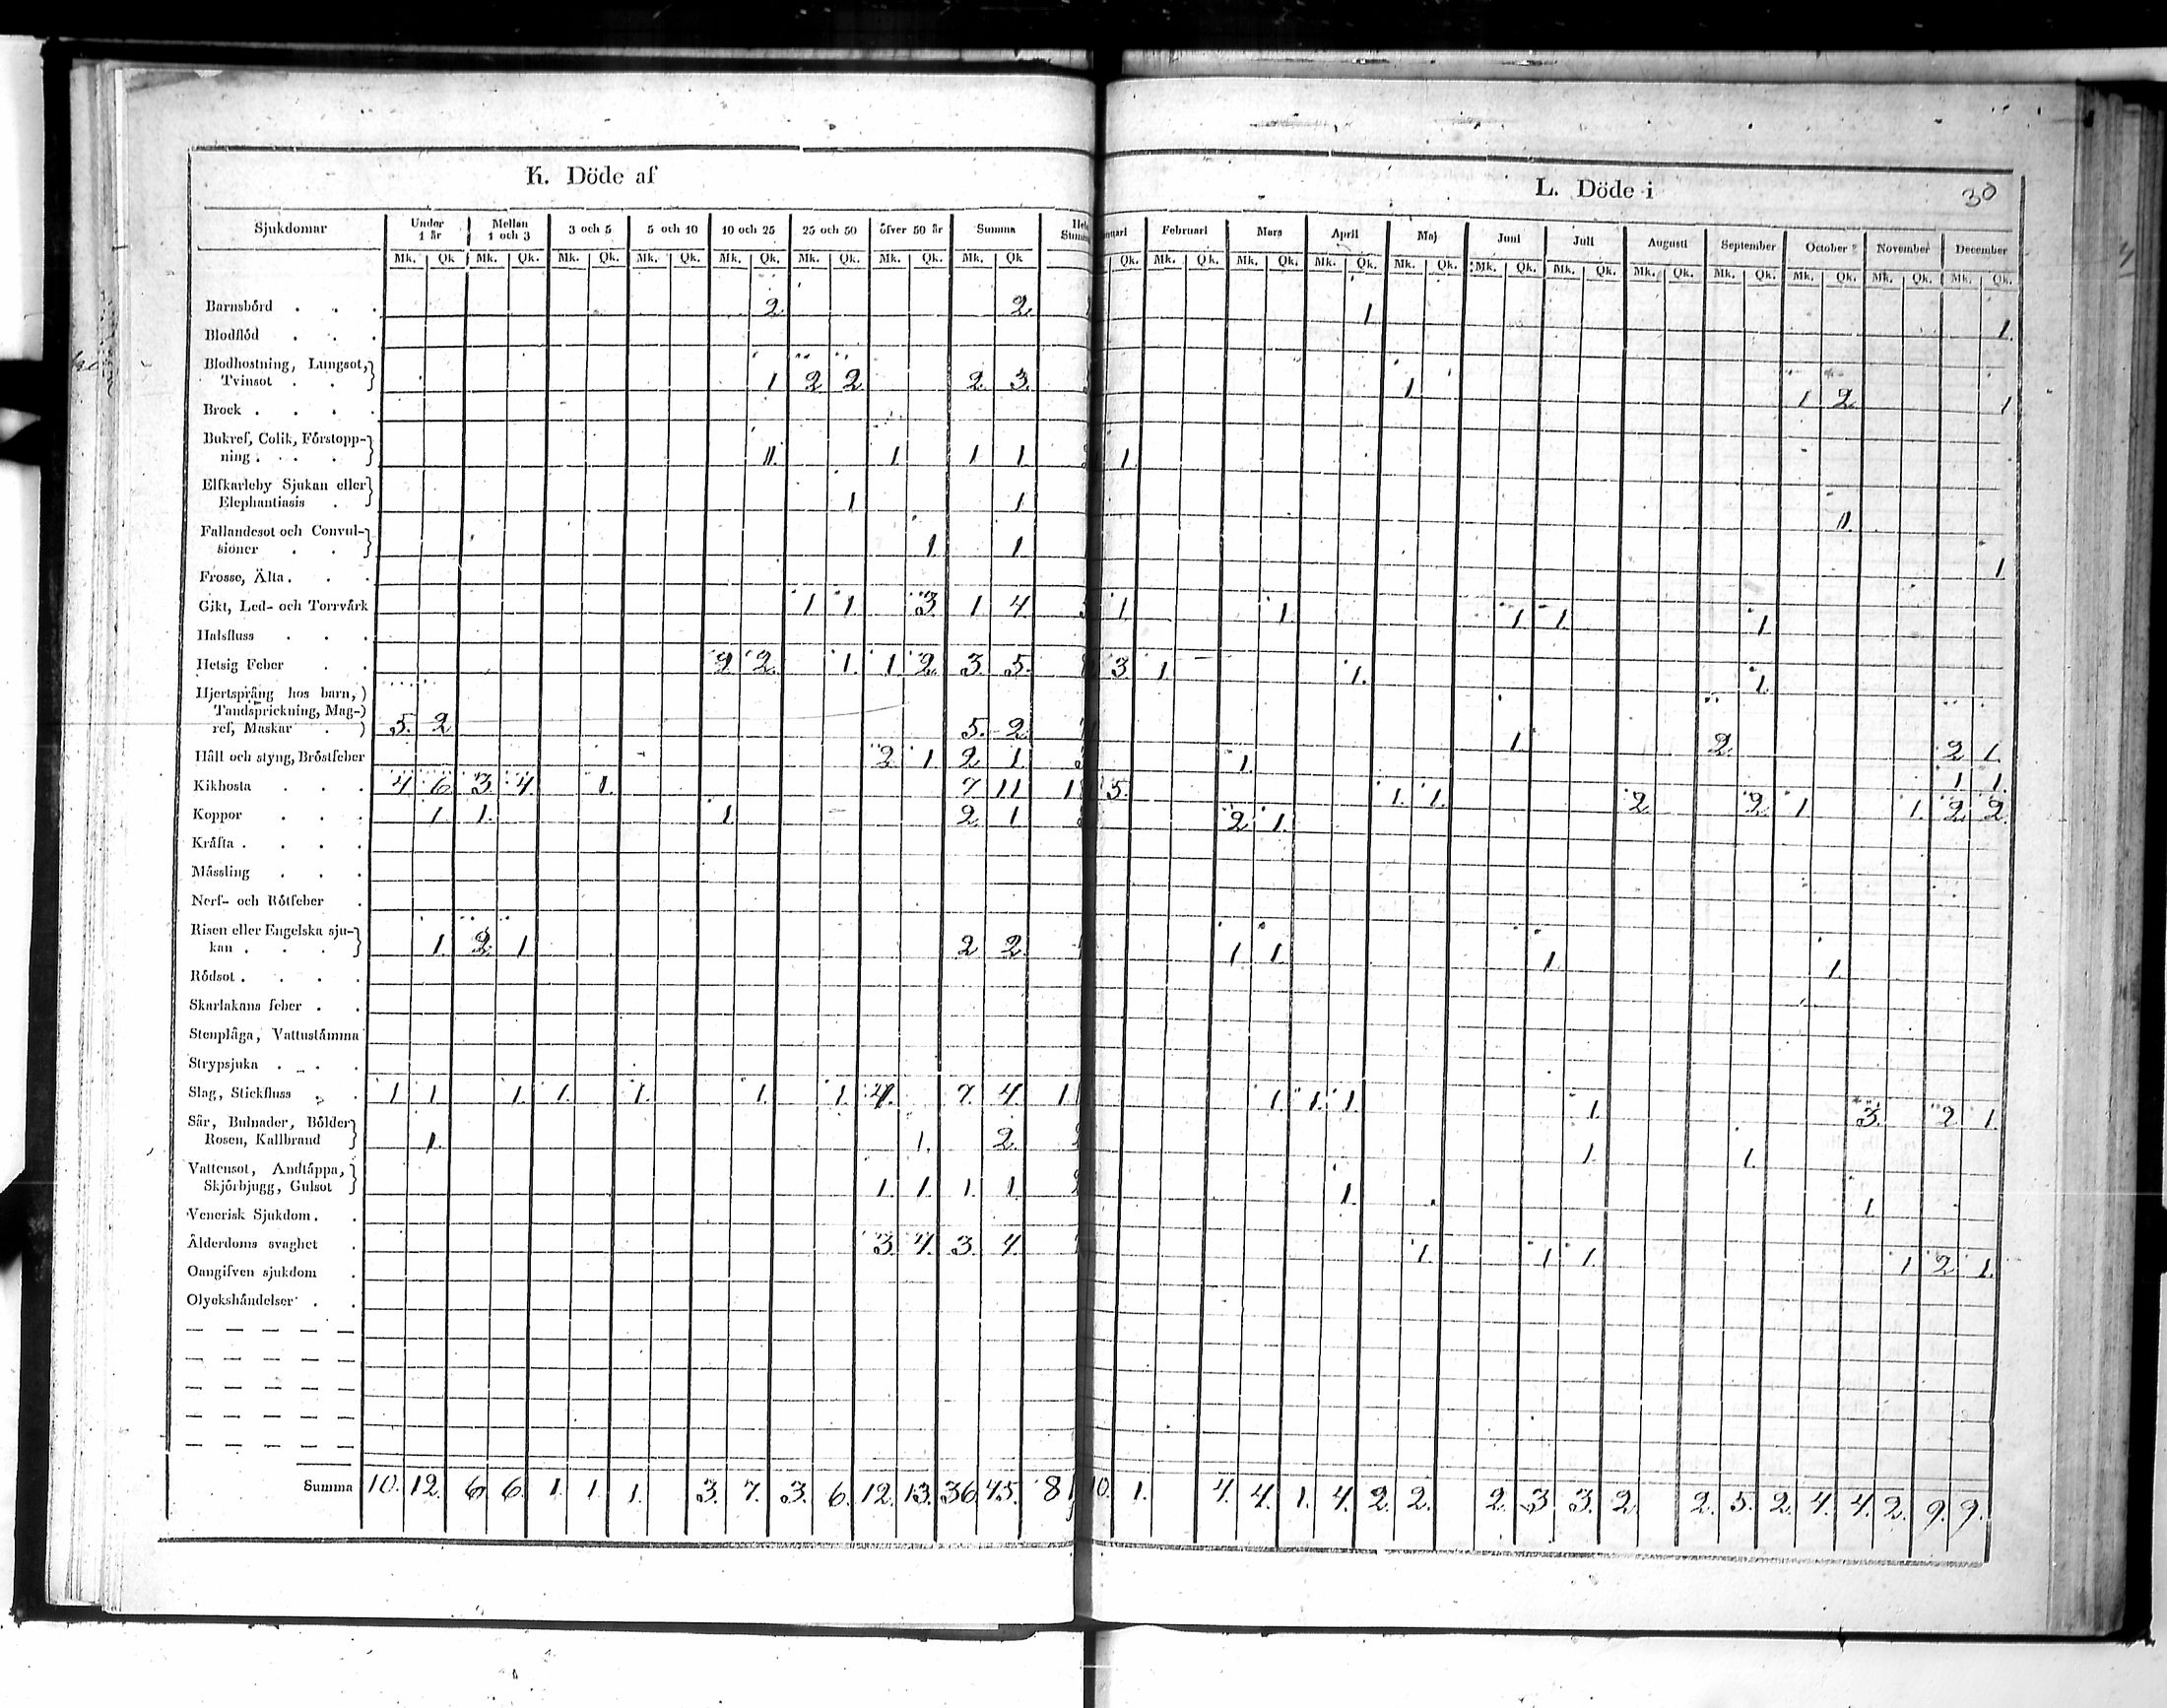 K. Döde af
L. Döde i
30
Sjukdomar Under 1 år Mellan 1 och 3 3 och 5 5 och 10 10 och 25 25 och 50 öfver 50 år Summa
Februari Mars April Maj Juni Juli Augusti September October November December
Mk. Qk Mk. Qk. Mk. Qk. Mk. Qk. Mk. Qk. Mk. Qk. Mk. Qk. Mk. Qk
Qk. Mk. Qk. Mk. Qk. Mk. Qk. Mk. Qk. Mk. Qk. Mk. Qk. Mk. Qk. Mk. Qk. Mk. Qk. Mk. Qk. Mk. Qk.
Barnsbörd . . . 2. 2. 1 1.
Blodflöd . . .
Blodhostning, Lungsot,
Tvinsot . . 1 2 2 2. 3. 1 1 2 1
Brock . . . .
Bukref, Colik, Förstopp-
ning . . . . 1. 1 1 1 1.
Elfkarleby Sjukan eller
Elephantiasis . 1 1 1.
Fallandesot och Convul-
sioner . . 1 1 1
Frosse, Älta . . .
Gikt, Led- och Torrvärk 1 1. 3. 1 4 1. 1. 1. 1. 1.
Halsfluss . . .
Hetsig Feber . . 2 2. 1. 1 2. 3. 5. 3 1 1. 1.
Hjertsprång hos barn,
Tandsprickning, Mag-
ref, Maskar . 5. 2 5. 2. 1 2. 2 1.
Håll och styng, Bröstfeber 2 1. 2 1. 1. 1 1.
Kikhosta . . . 4 6 3. 4. 1. 7 11 5. 1. 1. 2. 2. 1 1. 2. 2.
Koppor . . . 1 1. 1. 2 1 2 1.
Kräfta . . . .
Mässling . . .
Nerf- och Rötfeber .
Risen eller Engelska sju-
kan . . . . 1. 2. 1 2 2. 1 1. 1. 1.
Rödsot . . . .
Skarlakans feber . .
Stenplåga, Vattustämma
Strypsjuka . . .
Slag, Stickfluss . . 1 1. 1. 1. 1. 1. 1. 4. 7. 4 11 1. 1. 1. 1. 3. 2. 1.
Sår, Bulnader, Bölder
Rosen, Kallbrand 1. 1. 2. 1. 1.
Vattensot, Andtäppa,
Skjörbjugg, Gulsot 1. 1. 1. 1. 1. 1.
Venerisk Sjukdom . .
Ålderdoms svaghet . 3. 4. 3. 4. 1. 1 1. 1 2. 1.
Oangifven sjukdom .
Olyckshändelser . .
Summa 10. 12. 6. 6. 1. 1. 1. 3. 7. 3. 6. 12. 13. 36. 45. 81 10. 1. 4. 4. 1. 4. 2. 2. 2. 3 3. 2. 2. 5. 2. 4. 4. 2. 9. 9.